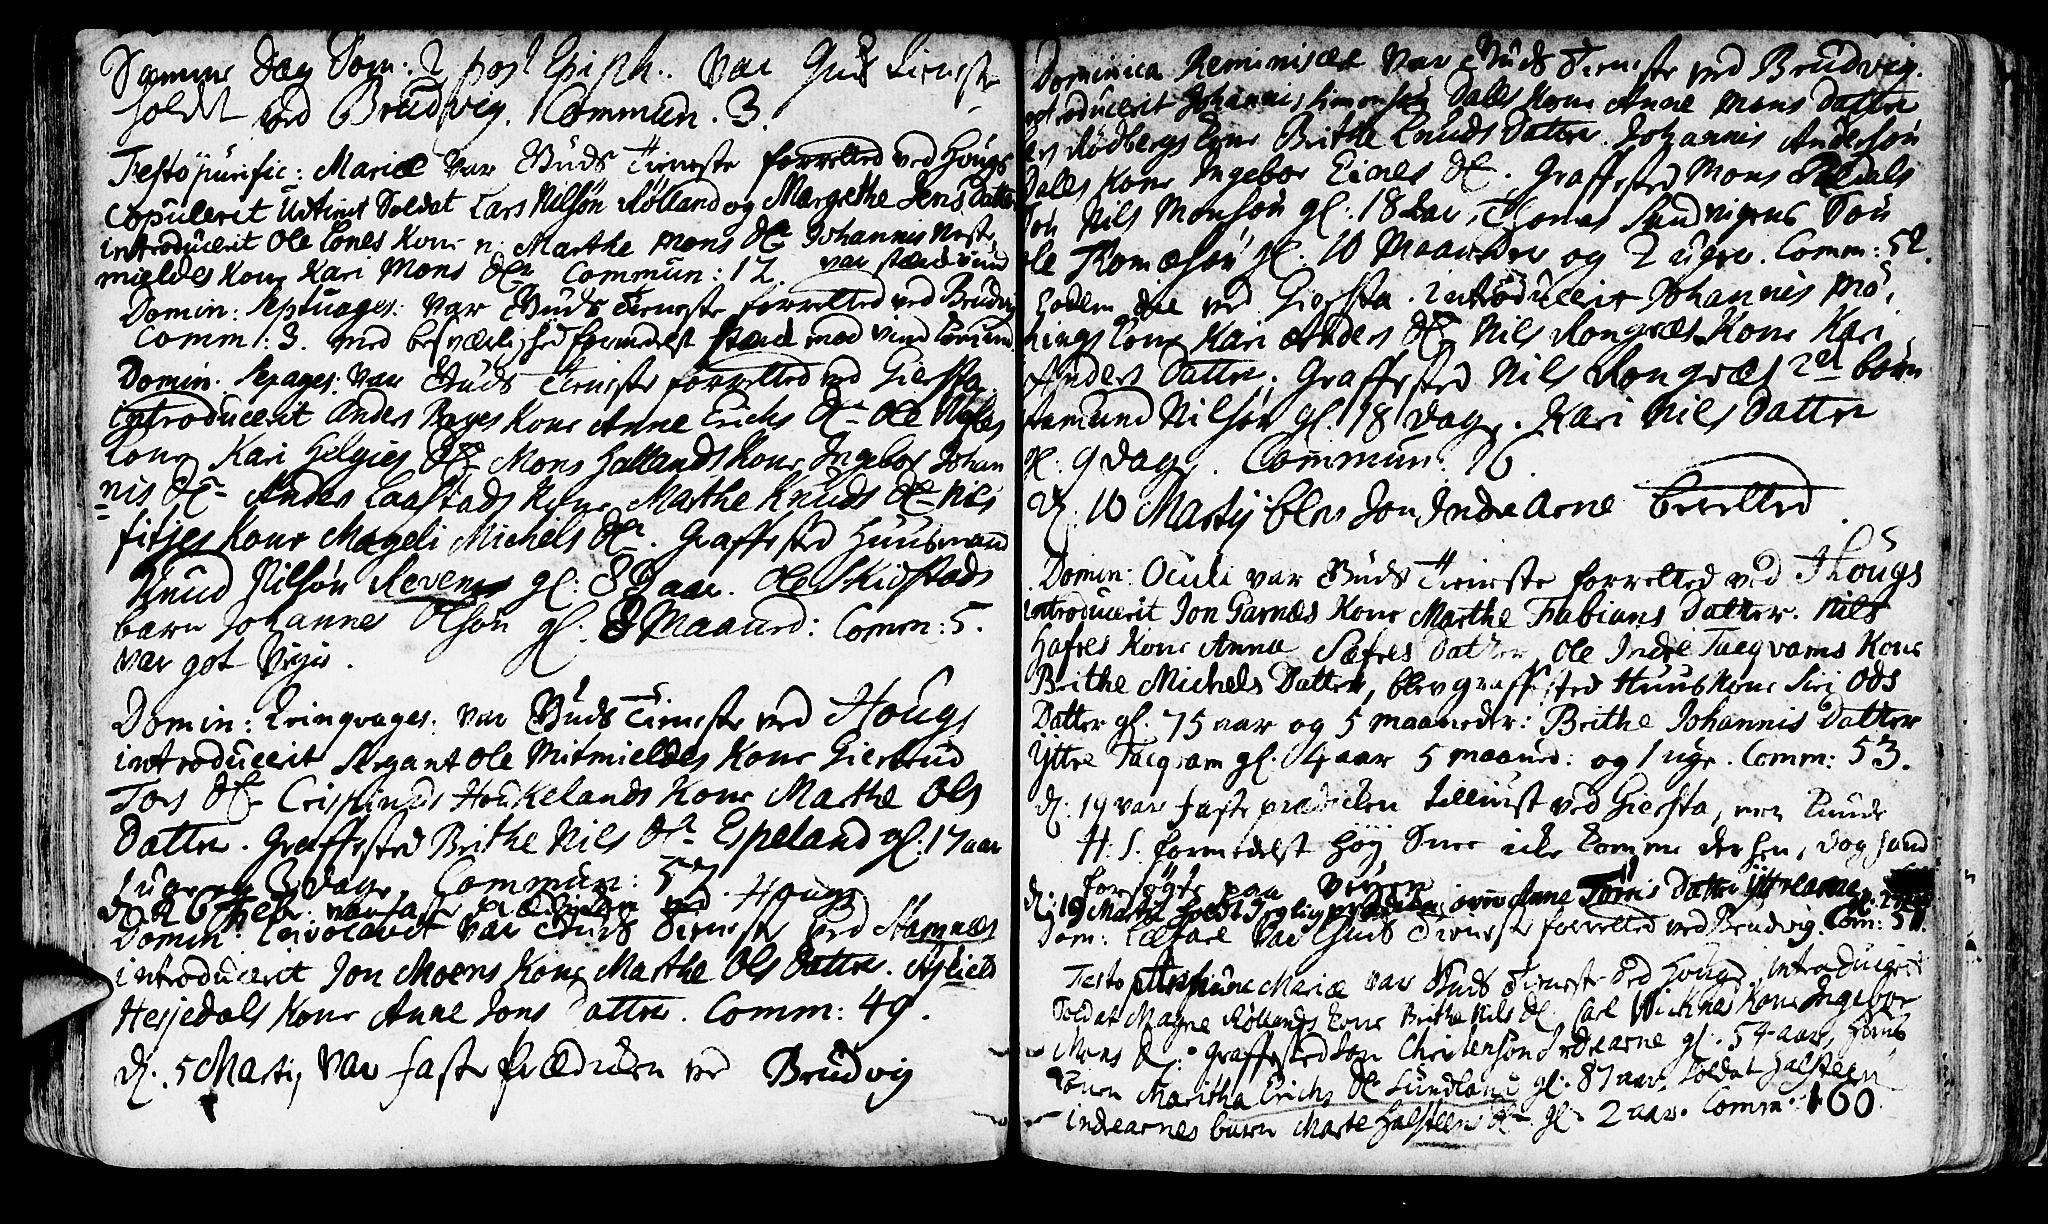 Samme Dag Dom: 2 post Epiph: var Guds tieneste
holdt ved Brudvig. Commun. 3.
Festo purific: Mariæ var Guds Tieneste forretted ved Hougs
Copulerit Udtient Soldat Lars Nilsøn Rølland og Margrethe Jens Datter
introducerit Ole Lones Kone n: Marthe Mons Dr Johannis Meste
mieldes Kone Kari Mons Dr Commun: 12
Domin: Septuages: var Guds Tieneste forretted ved Brudvig
Comm: 3. med besværlighed formedelst stærk mod vind
Domin. Sexages: var Guds Tieneste forretted ved Giersta
introducerit Anders Kone Anne Erichs Dr Ole
Kone Kari Helgies Dr Mons Hatlands Kone Ingebor Johan
nis Dr Anders Laastads Kone Marthe Knuds Dr Nils
fitjes Kone Mageli Michels Dr. Graffested Huusmand
Knud Nilsøn Revenes gl: 89 aar. Ole Skidstads
barn Johannes Olsøn gl: 8 Maaned: Comm: 5.
var got
Domin: Qvinqvages: var Guds Tieneste ved Hougs
introducerit Sergant Ole Mitmieldes Kone Giertrud
Tors Dr Crispinus Houkelands Kone Marthe Ols
Datter. Graffested Brithe Nils Dr Espeland gl: 17 aar
1 uge og 3 dage. Commun: 57
d. 26 Febr: var faste prædiken ved Hougs
Domin: Invocavit var Guds Tieneste ved Hamnæs
introducerit Jon Moens Kone Marthe Ols Datter. Aslichs
Hesjedals Kone Anne Jons Datter. Comm: 49.
d. 5 Martij var faste prædiken ved Brudvig
Dominica Reminiscere var Guds Tieneste ved Brudvig.
introducerit Johannis Simonsøn Dalles Kone Anne Mons Datter
Rødbergs Kone Brithe Knuds Datter. Johannis Andersøn
Dalles Kone Ingebor Einers Dr. Graffested Mons
Søn Nils Monsøn gl: 18 aar, Thomas Sandvigens Søn
Ole Thomæsøn gl: 10 Maaneder og 2 uger. Comm: 52.
Sodem die ved Giersta. introducerit Johannis Mø
lings Kone Kari Anders Dr Nils Rongræs Kone Kari
Anders Datter. Graffested Nils Rongræs 2de børn
Aamund Nilsøn gl. 18 dage. Kari Nils Datter
gl: 9 dage. Commun: 16.
d: 10 Martij blev Jon Indre Arne berettet.
Domin: Oculi var Guds Tieneste forretted ved Hougs
introducerit Jon Garnæs Kone Marthe Fabians Datter. Nils
Hafres Kone Anna Sæfres Datter, Ole Indre Tacqvams Kone
Brithe Michels Datter, blev graffested Huuskone Siri Ods
Datter gl. 75 aar og 5 maaneder: Brithe Johannis Datter
Yttre Tacqvam gl. 4 aar 5 maaned: og 1 uge. Comm: 53.
d: 19 var faste prædiken tillyst ved Giersta, men kunde
H: S: formedelst høy Snee icke komme derhen, dog hand
forsøgte paa Veyen
d. 19 Martij holdt over Anne Tørris Datter Yttrearne
Dom: Lætare var Guds Tieneste forretted ved Brudvig. Com: 51.
Festo Mariæ var Guds Tieneste ved Hougs, introducerit
Soldat Magne Røllands Kone Brithe Nils Dr. Carl Wicknes Kone Ingebor
Mons Dr: Graffested Jon Christensøn Indrearne gl: 54 aar, Huus
konen Maritha Erichs Dr Lundland gl: 87 aar. Soldat Halsteen
indrearnes barn Marte Halsteens Dr. gl: 2 aar. Comm: 160.